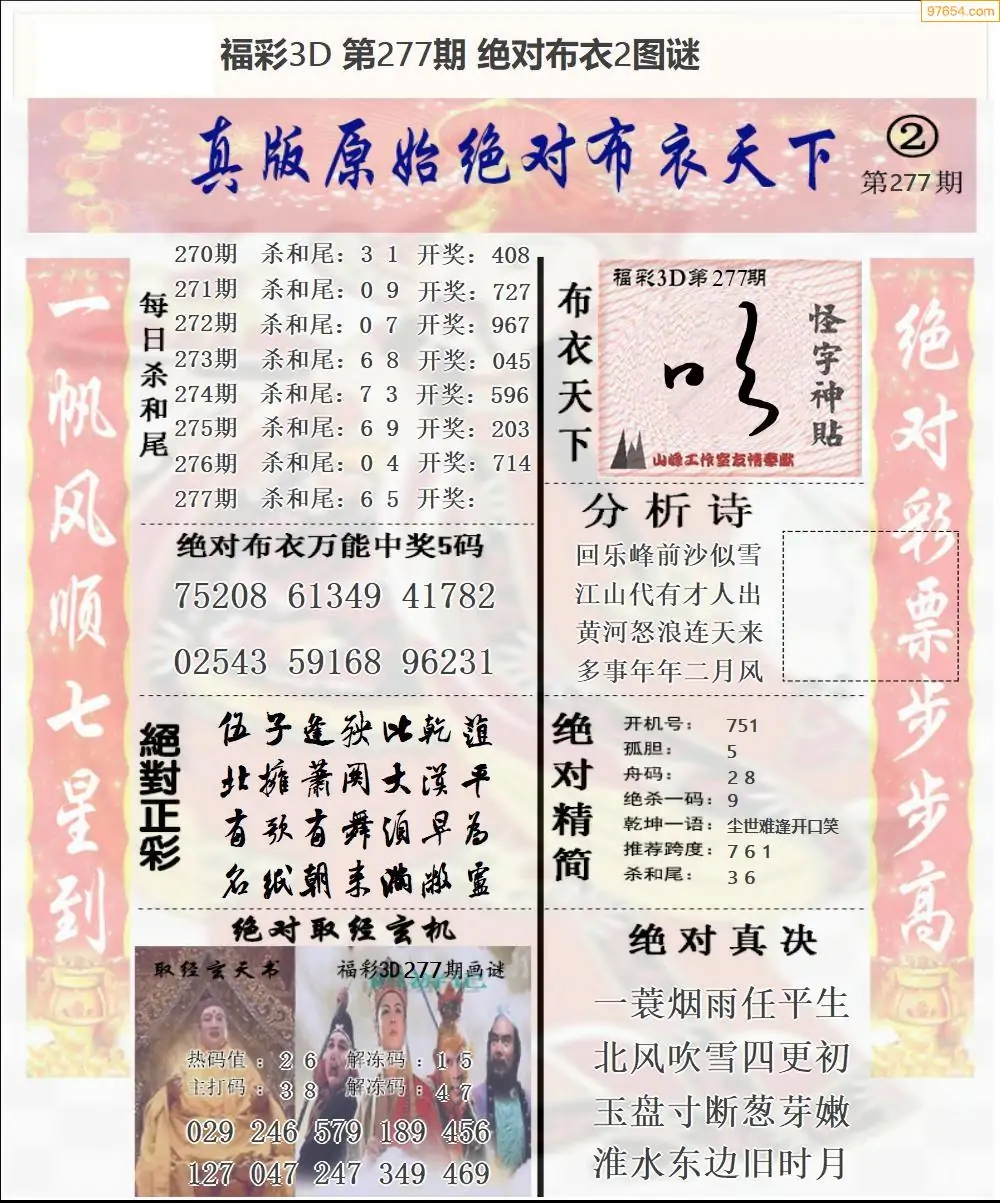 97654.com
福彩3D 第277期 绝对布衣2图谜
真版原始绝对布衣天下
②
第277期
一帆风顺七星到
每日杀和尾
270期 杀和尾：3 1 开奖：408
271期 杀和尾：0 9 开奖：727
272期 杀和尾：0 7 开奖：967
273期 杀和尾：6 8 开奖：045
274期 杀和尾：7 3 开奖：596
275期 杀和尾：6 9 开奖：203
276期 杀和尾：0 4 开奖：714
277期 杀和尾：6 5 开奖：
绝对布衣万能中奖5码
75208 61349 41782
02543 59168 96231
絕對正彩
伍子逢殃比乾
北擁萧阅大漠平
有歌有舞须早為
名纸朝来满敝
绝对取经玄机
取经玄天书
福彩3D277期画谜
热码值：2 6 解冻码：1 5
主打码：3 8 解冻码：4 7
029 246 579 189 456
127 047 247 349 469
布衣天下
福彩3D第277期
怪字神貼
山峰工作室友情奉献
分析诗
回乐峰前沙似雪
江山代有才人出
黄河怒浪连天来
多事年年二月风
绝对精简
开机号：751
孤胆：5
舟码：2 8
绝杀一码：9
乾坤一语：尘世难逢开口笑
推荐跨度：7 6 1
杀和尾：3 6
绝对真决
一蓑烟雨任平生
北风吹雪四更初
玉盘寸断葱芽嫩
淮水东边旧时月
绝对彩票步步高